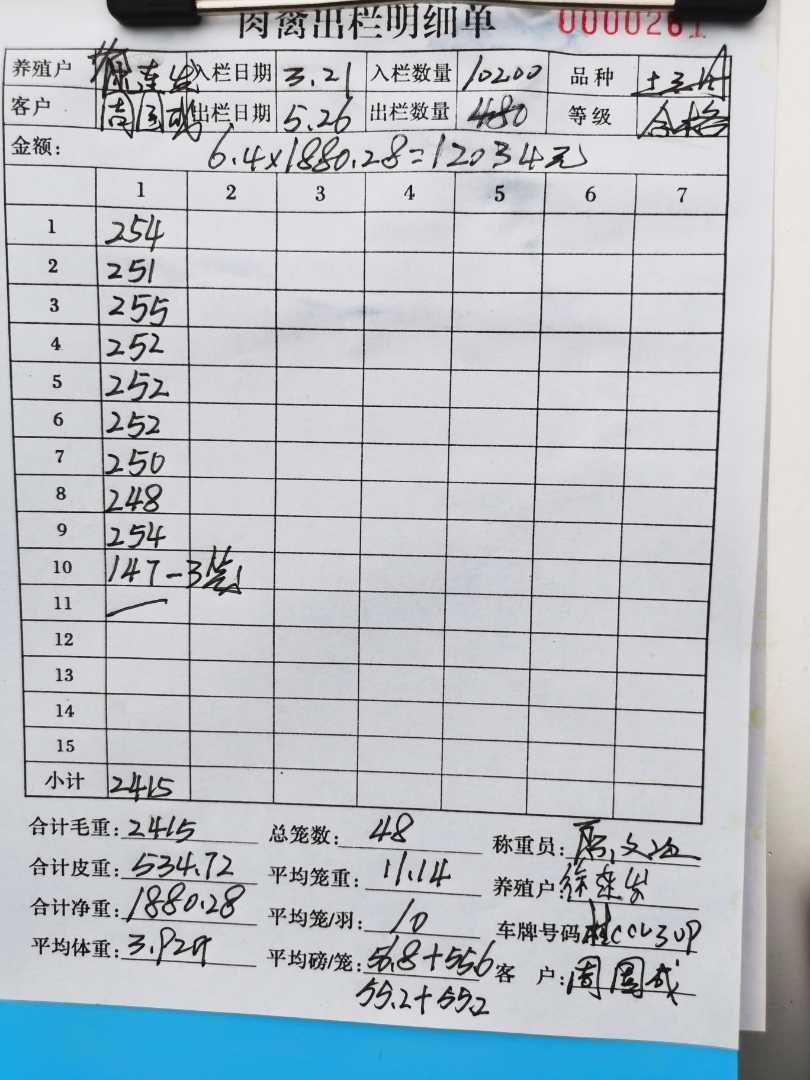 肉禽出栏明细单 0000261
养殖户 入栏日期 3.21 入栏数量 10200 品种
客户 周国成 出栏日期 5.26 出栏数量 480 等级 合格
金额： 6.4×1880.28=12034元
1 2 3 4 5 6 7
1 254
2 251
3 255
4 252
5 252
6 252
7 250
8 248
9 254
10 147-3笼
11
12
13
14
15
小计 2415
合计毛重： 2415 总笼数： 48 称重员：
合计皮重： 534.72 平均笼重： 11.14 养殖户：
合计净重： 1880.28 平均笼/羽： 10 车牌号码
平均体重： 3.929 平均磅/笼： 56.8+55.6 客 户： 周国成
55.2+55.2